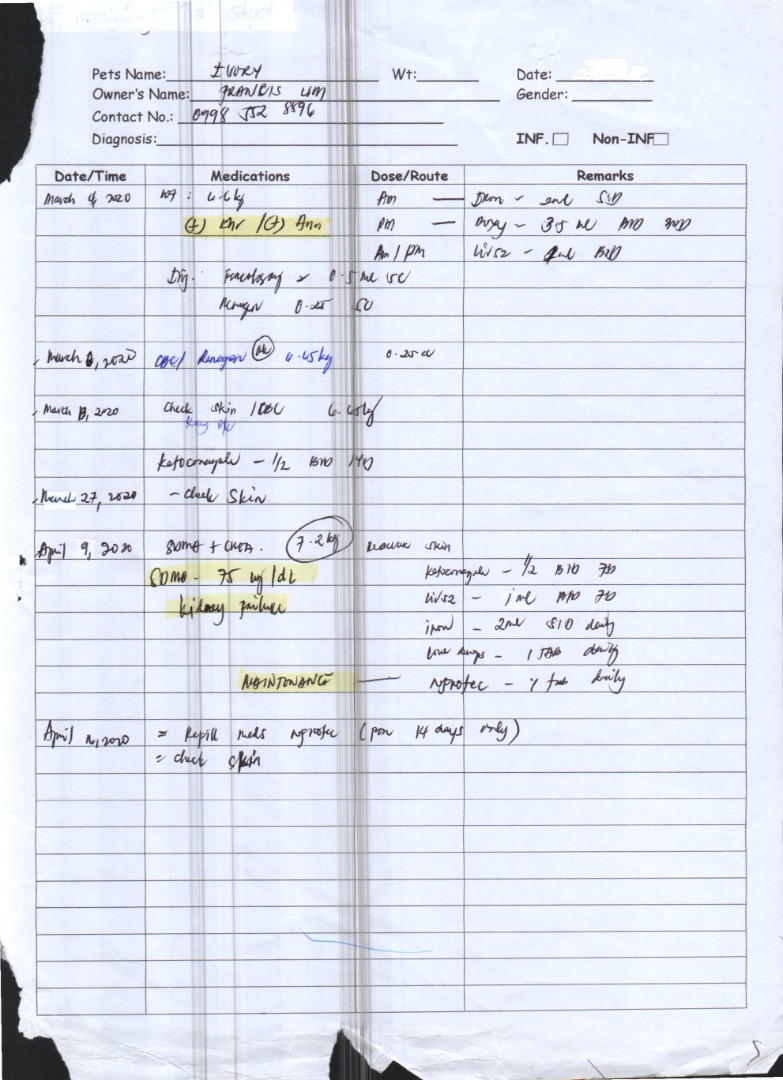 Pets Name: IVORY Wt: Date:
Owner's Name: FRANCIS LIM Gender:
Contact No.: 0998 552 8896
Diagnosis: INF. Non-INF
Date/Time Medications Dose/Route Remarks
March 4, 2020 WT : 6.6kg Am — Iron - 2ml SID
(+) Ehr /(+) Ana PM — Doxy - 3.5 ml BID
Am/PM Liv52 - 2ml BID
Inj. 0.5 ml SC
Renogen 0.25 SC
March 6, 2020 CBC/ Renogen ok 6.65kg 0.25 cc
March 13, 2020 Check skin /CBC 6.65kg
Ketoconazole - 1/2 BID 14D
March 27, 2020 - Check Skin
April 9, 2020 SDMA + CREA. 7.2kg skin
SDMA - 75 ug/dL Ketoconazole - 1/2 BID 7D
kidney failure Liv52 - 1ml BID 7D
iron - 2ml SID daily
- 1 TAB daily
MAINTONANCE — Nprotec - 1 tab daily
April 2020 = Refill meds Nprotec (for 14 days only)
= check skin
5